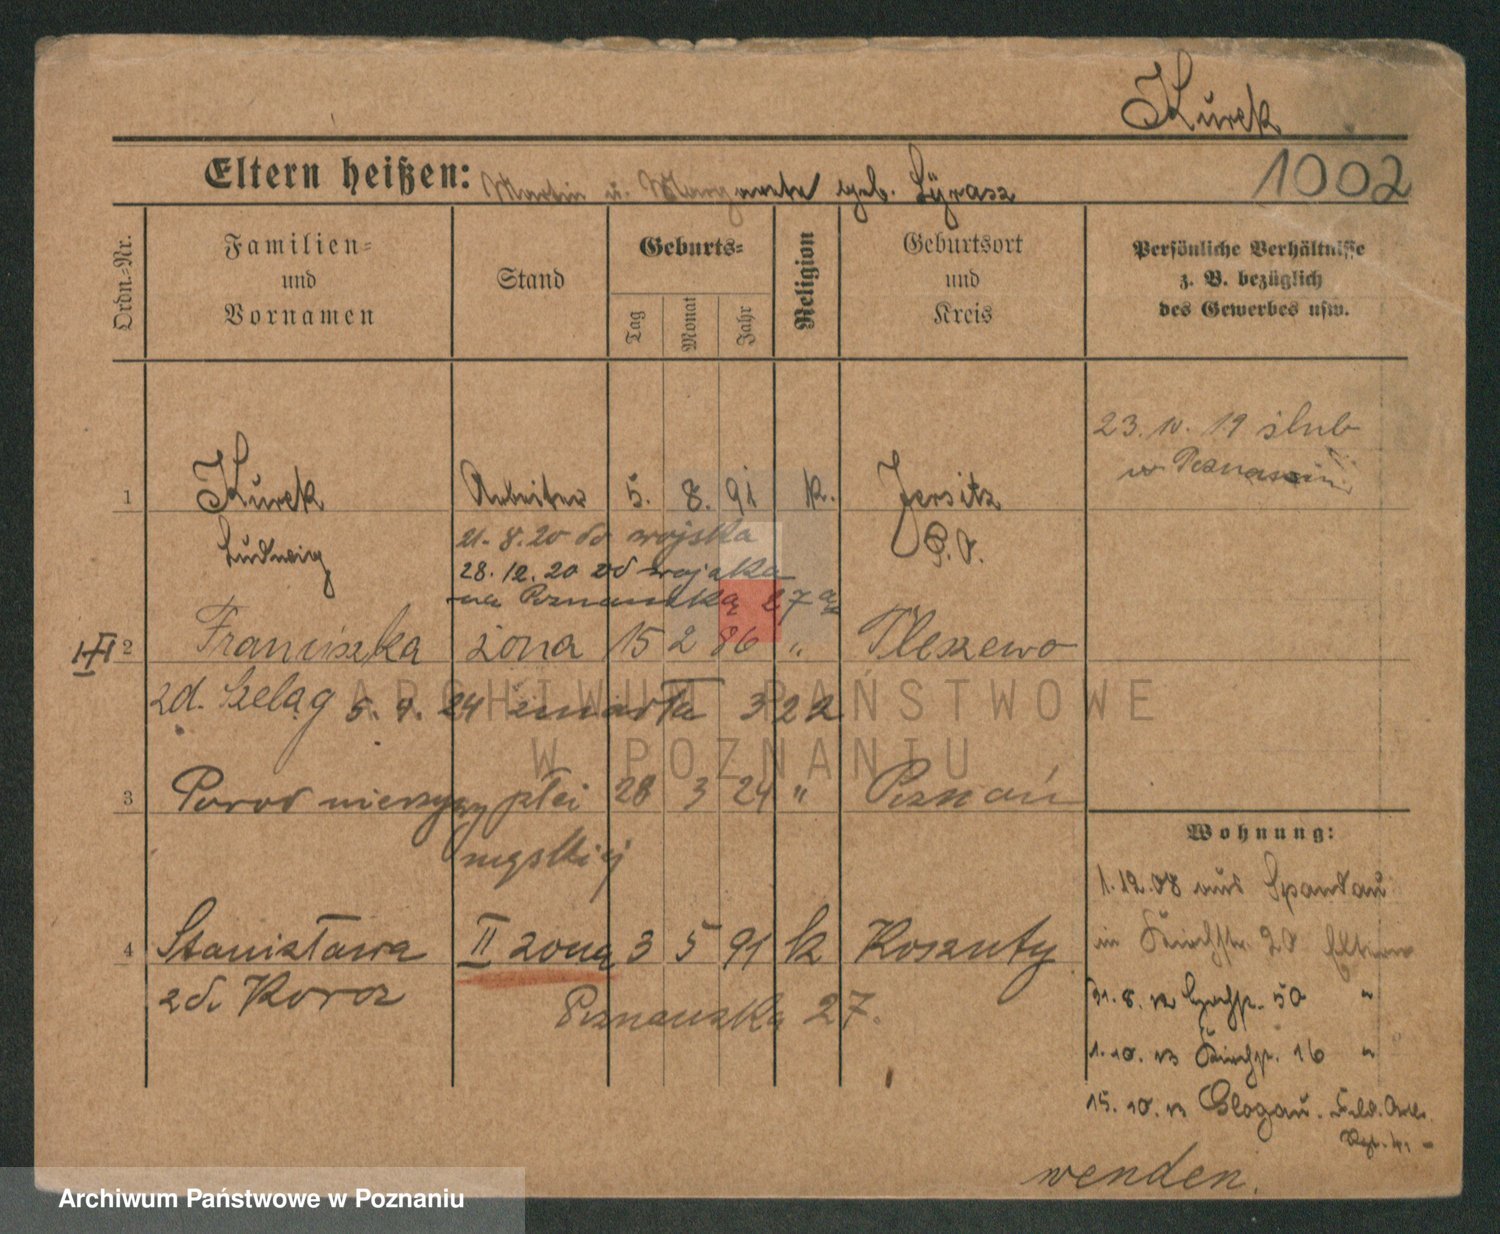 Kurek
1002
Eltern heißen: Martin u. Margarete geb. Lÿrasz
Ordn.-Nr.
Familien- und Vornamen
Stand
Geburts-
Tag
Monat
Jahr
Religion
Geburtsort und Kreis
Persönliche Verhältnisse
z. B. bezüglich
des Gewerbes usw.
23. IV. 19 ślub
w Poznaniu
1 Kurek Arbeiter 5. 8. 91 k. Jersitz
Ludwig
P. O.
21. 8. 20 do wojska
28. 12. 20 od wojska
na Poznańską 27
2 Franciszka żona 15 2 86 " Pleszewo
zd. Szeląg 5. 9. 24 zmarła
3 Porod nieżywy płci 28 3 24 " Poznań
męskiej
4 Stanisława II żona 3 5 91 k Koszuty
zd. Koroz
Poznańska 27.
Wohnung:
1. 12. 08 aus Spandau
in Kirchstr. 20 Eltern
31. 8. 12 50 "
1. 10. 13 Kirchstr. 16 "
15. 10. 13 Glogau. Feld. Art.
Rgt. 41 -
wenden.
ARCHIWUM PAŃSTWOWE
W POZNANIU
Archiwum Państwowe w Poznaniu